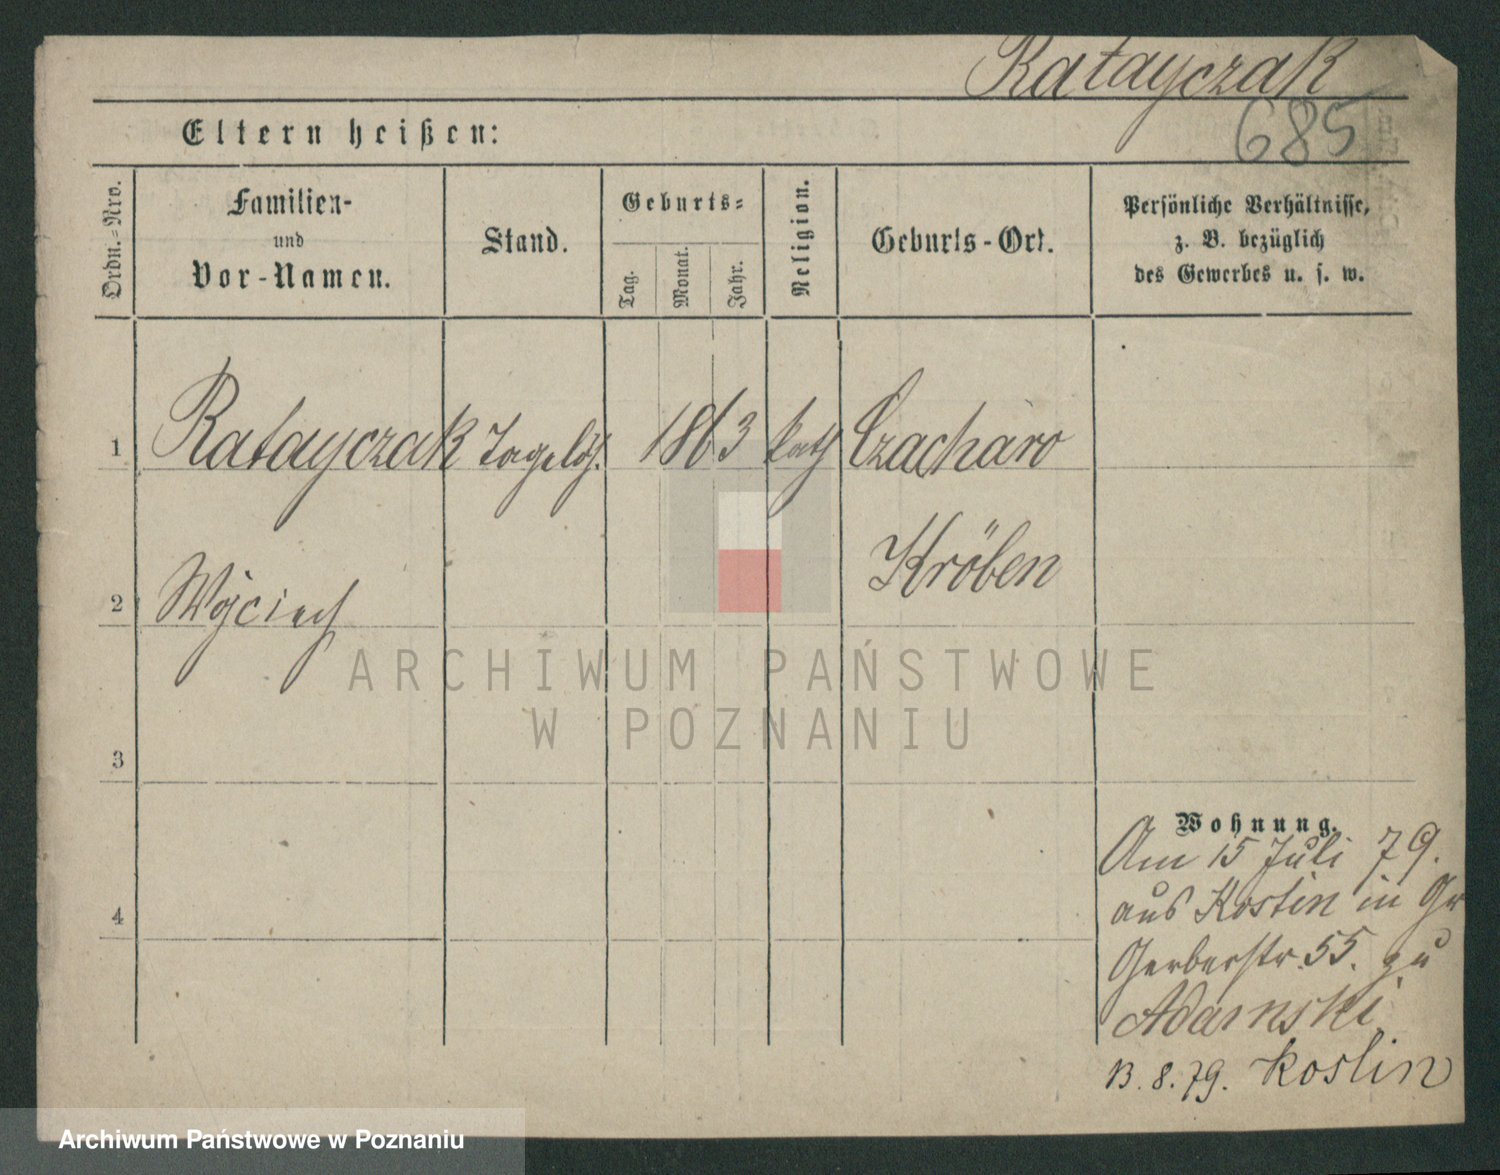 Ratayczak
685
Eltern heißen:
Ordn.=Nro.
Familien-
und
Vor-Namen.
Stand.
Geburts-
Tag.
Monat.
Jahr.
Religion.
Geburts-Ort.
Persönliche Verhältnisse,
z. B. bezüglich
des Gewerbes u. s. w.
1 Ratayczak Tagelöh. 1863 kath Czacharo
Kröben
2 Wojciech
ARCHIWUM PAŃSTWOWE
W POZNANIU
3
Wohnung.
Am 15 Juli 79.
aus Kostin in Gr
4
Gerberstr. 55. zu
Adamski
13. 8. 79. Koslin
Archiwum Państwowe w Poznaniu